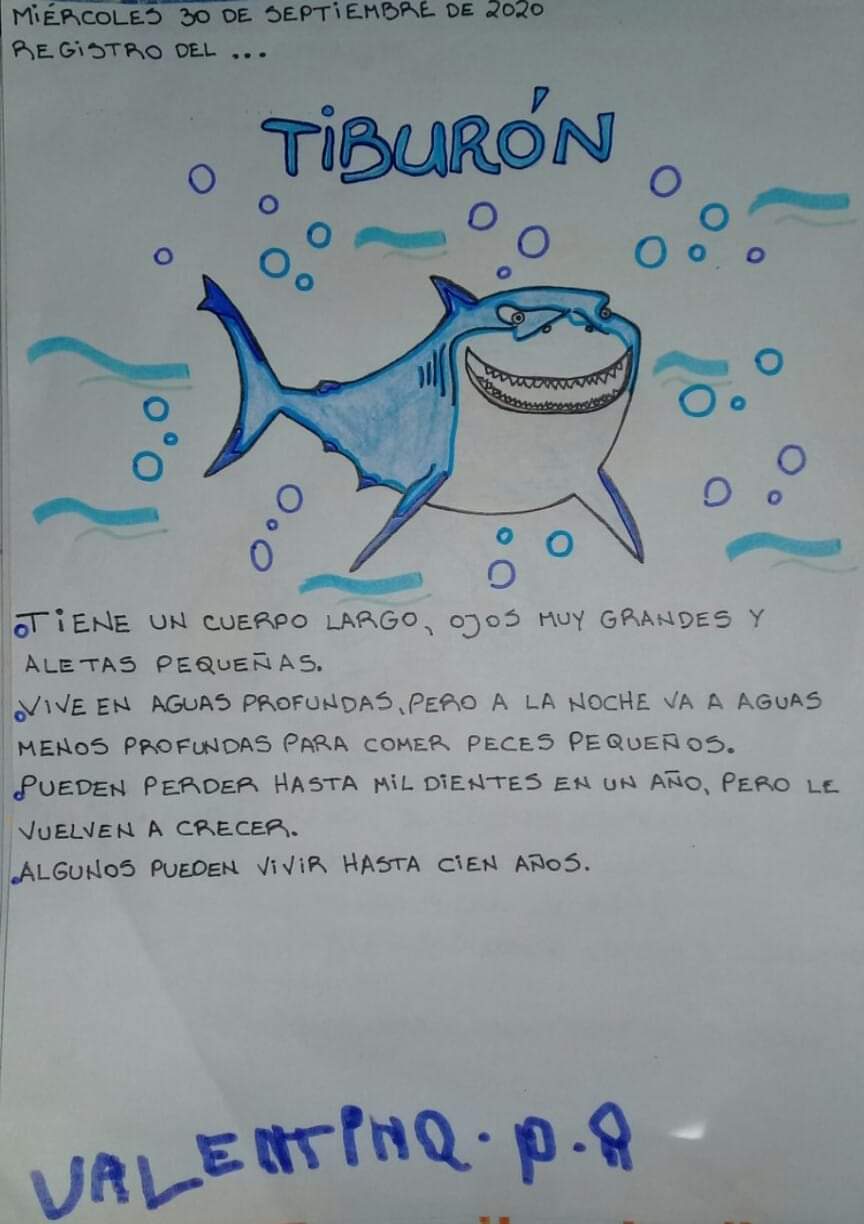 MIÉRCOLES 30 DE SEPTIEMBRE DE 2020
REGISTRO DEL ...
TIBURÓN
TIENE UN CUERPO LARGO, OJOS MUY GRANDES Y
ALETAS PEQUEÑAS.
VIVE EN AGUAS PROFUNDAS, PERO A LA NOCHE VA A AGUAS
MENOS PROFUNDAS PARA COMER PECES PEQUEÑOS.
PUEDEN PERDER HASTA MIL DIENTES EN UN AÑO, PERO LE
VUELVEN A CRECER.
ALGUNOS PUEDEN VIVIR HASTA CIEN AÑOS.
VALENTINA. P. A